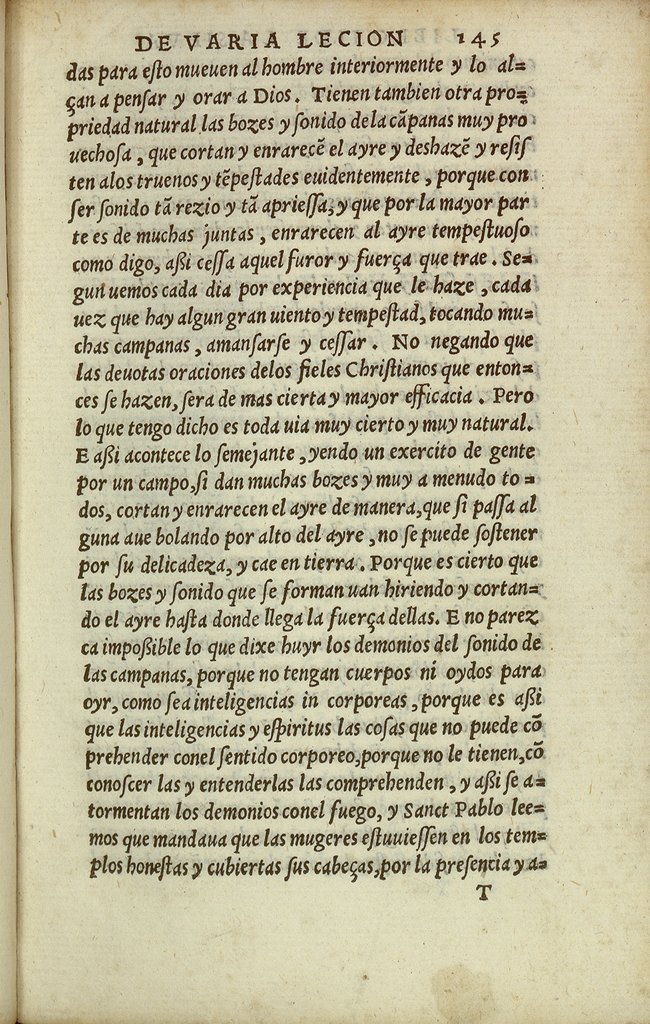 DE VARIA LECION 145
das para esto mueuen al hombre interiormente y lo al=
çan a pensar y orar a Dios. Tienen tambien otra pro=
priedad natural las bozes y sonido dela cãpanas muy pro
uechosa, que cortan y enrarecẽ el ayre y deshazẽ y resis
ten alos truenos y tẽpestades euidentemente, porque con
ser sonido tã rezio y tã apriessa, y que por la mayor par
te es de muchas juntas, enrarecen al ayre tempestuoso
como digo, aßi cessa aquel furor y fuerça que trae. Se=
gun uemos cada dia por experiencia que le haze, cada
uez que hay algun gran uiento y tempestad, tocando mu=
chas campanas, amansarse y cessar. No negando que
las deuotas oraciones delos fieles Christianos que enton=
ces se hazen, sera de mas cierta y mayor efficacia. Pero
lo que tengo dicho es toda uia muy cierto y muy natural.
E aßi acontece lo semejante, yendo un exercito de gente
por un campo, si dan muchas bozes y muy a menudo to=
dos, cortan y enrarecen el ayre de manera, que si passa al
guna aue bolando por alto del ayre, no se puede sostener
por su delicadeza, y cae en tierra. Porque es cierto que
las bozes y sonido que se forman uan hiriendo y cortan=
do el ayre hasta donde llega la fuerça dellas. E no parez
ca impoßible lo que dixe huyr los demonios del sonido de
las campanas, porque no tengan cuerpos ni oydos para
oyr, como sea inteligencias in corporeas, porque es aßi
que las inteligencias y espiritus las cosas que no puede cõ
prehender conel sentido corporeo, porque no le tienen, cõ
conoscer las y entenderlas las comprehenden, y aßi se a=
tormentan los demonios conel fuego, y Sanct Pablo lee=
mos que mandaua que las mugeres estuuiessen en los tem=
plos honestas y cubiertas sus cabeças, por la presencia y a=
T